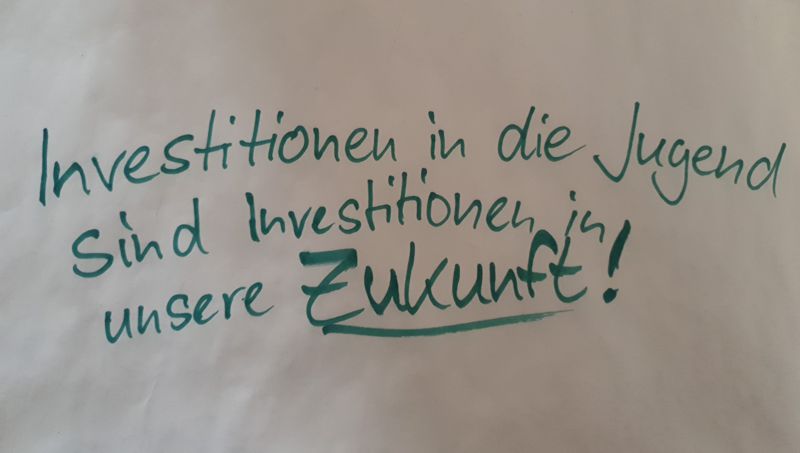 Investitionen in die Jugend
sind Investitionen in
unsere Zukunft!